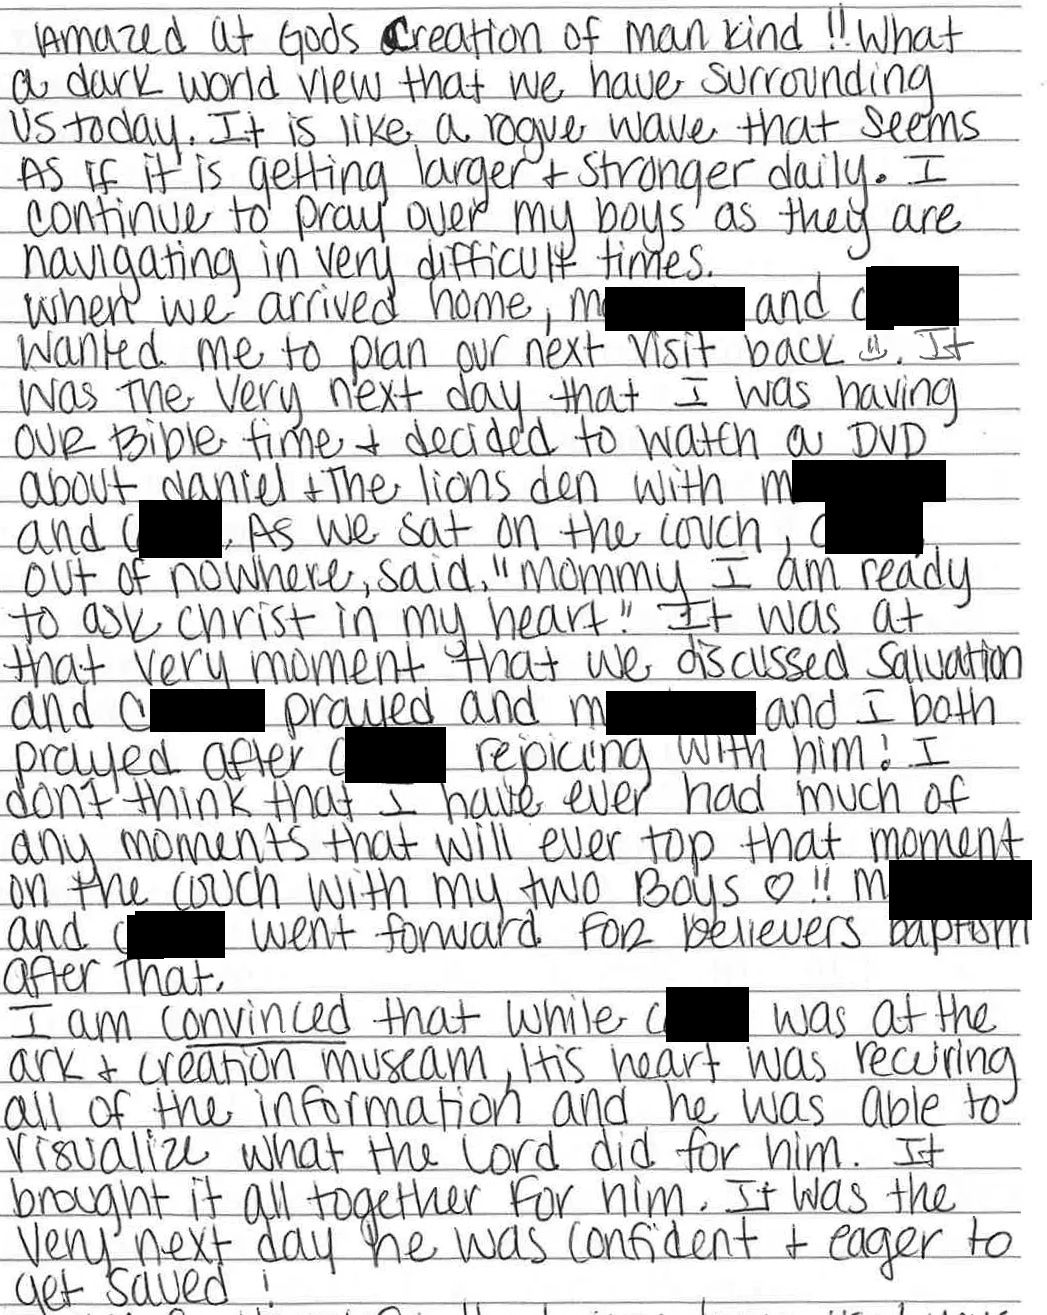 Amazed at Gods Creation of man kind !! What
a dark world view that we have surrounding
us today. It is like a rogue wave that seems
As if it is getting larger + stronger daily. I
continue to pray over my boys as they are
navigating in very difficult times.
when we arrived home, m and c
wanted me to plan our next visit back. It
was the very next day that I was having
our Bible time + decided to watch a DVD
about daniel + the lions den with m
and c . As we sat on the couch, c
out of nowhere, said, "mommy I am ready
to ask christ in my heart." It was at
that very moment that we discussed salvation
and c prayed and m and I both
prayed after c rejoicing with him! I
don't think that I have ever had much of
any moments that will ever top that moment
on the couch with my two Boys ♡ !! m
and c went forward for believers baptism
after that.
I am convinced that while c was at the
ark + creation museam, His heart was recieving
all of the information and he was able to
visualize what the Lord did for him. It
brought it all together for him. It was the
very next day he was confident + eager to
get saved !